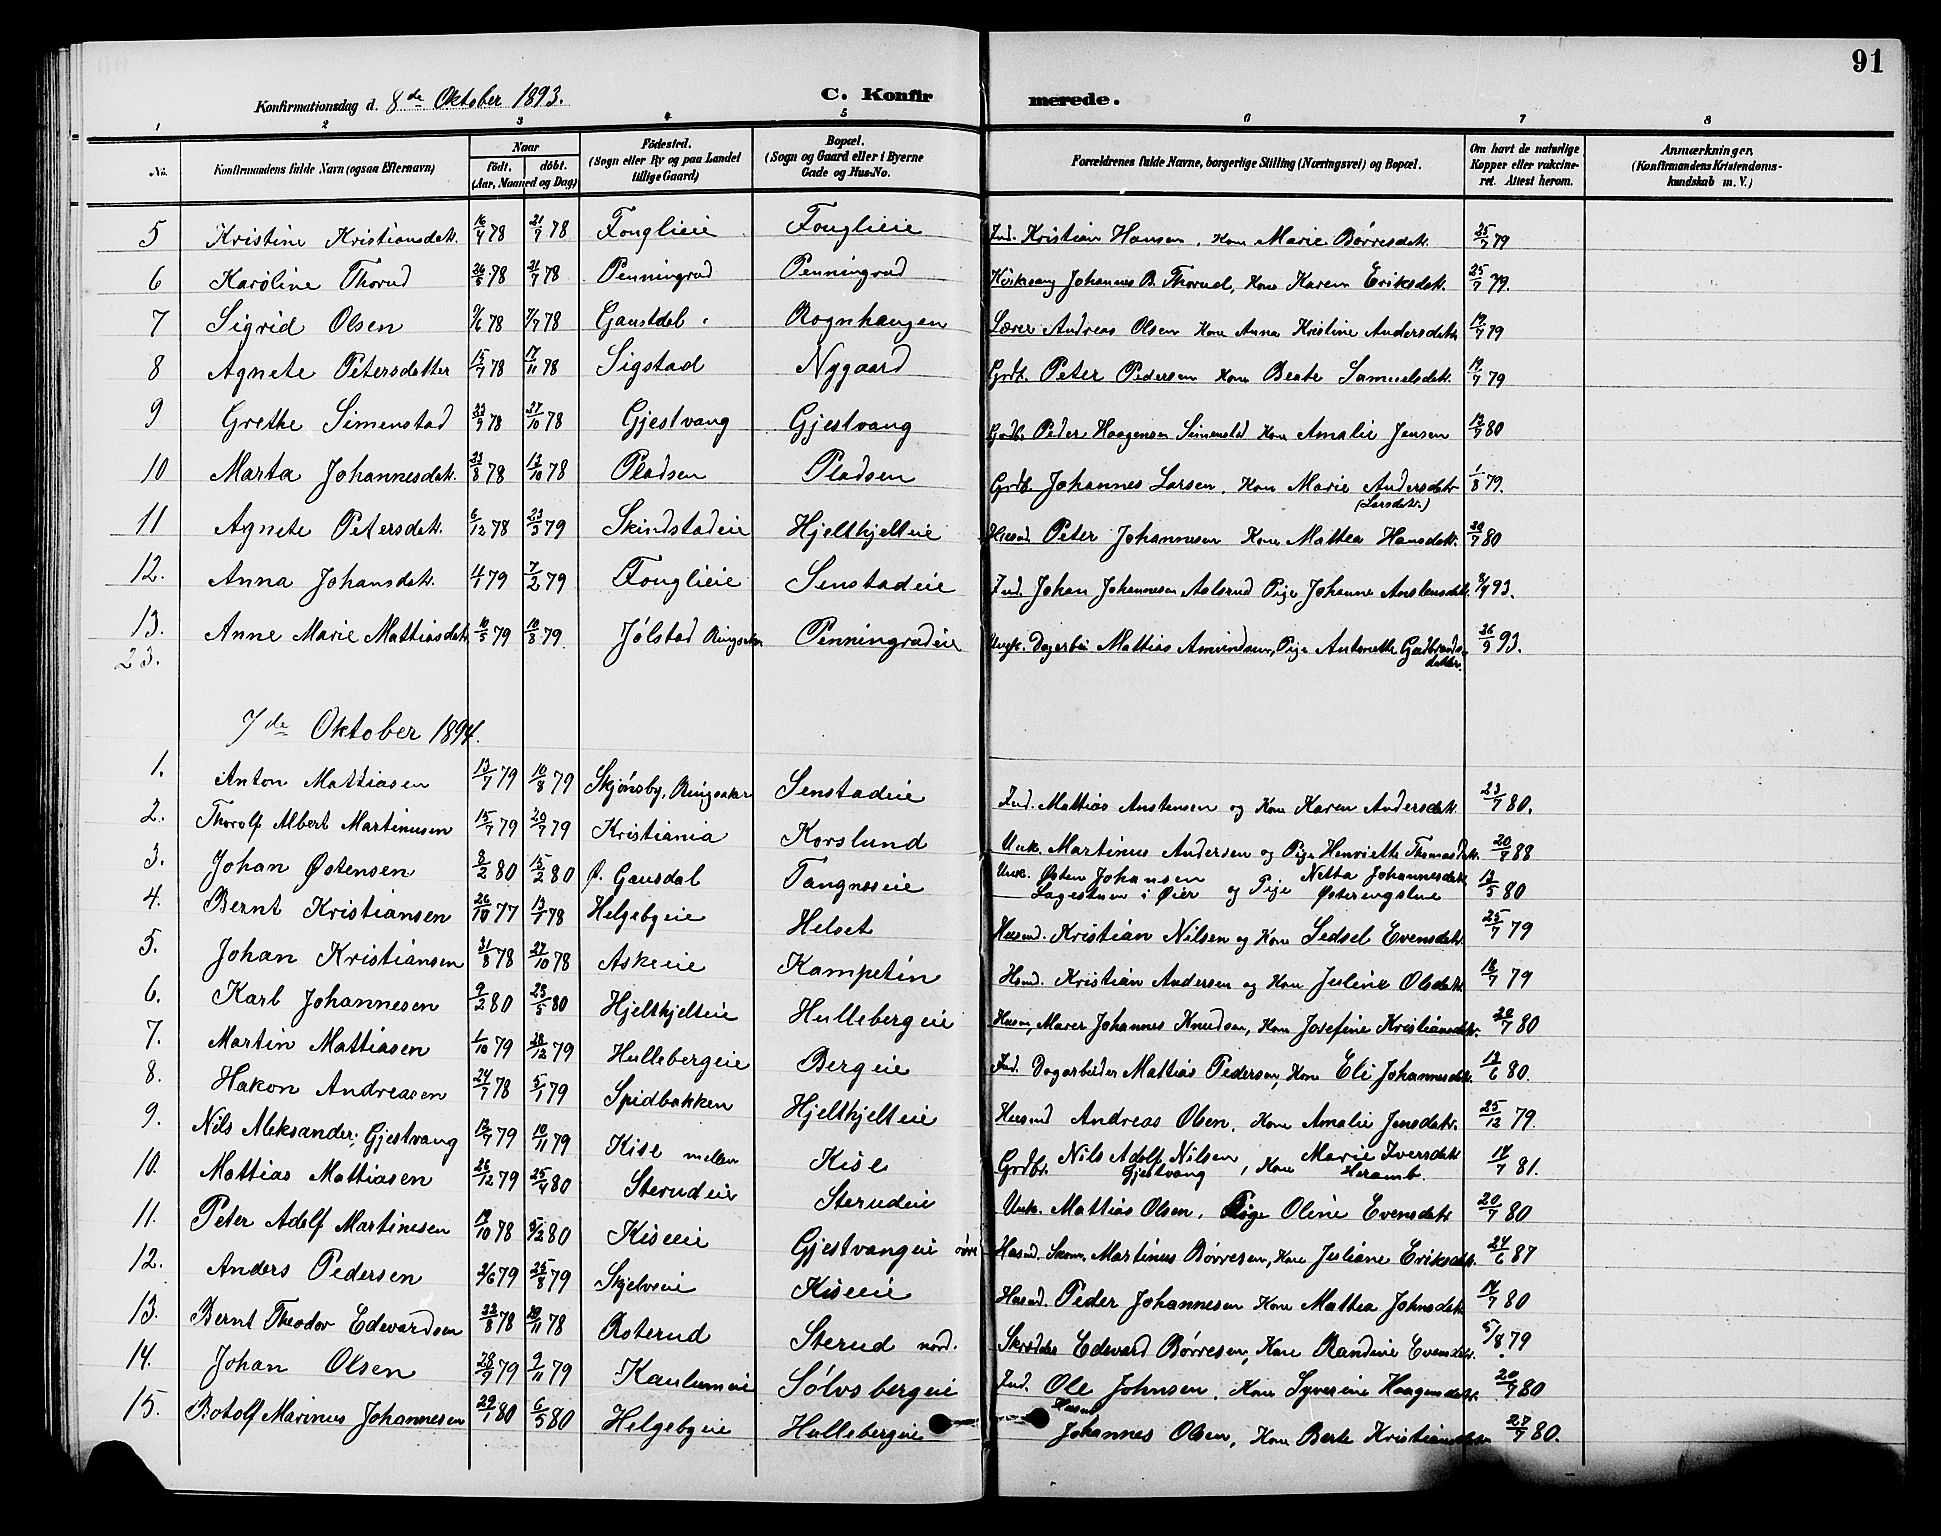 91
Konfirmationsdag d. 8de Oktober 1893. C. Konfirmerede.
1 2 3 4 5 6 7 8
No. Konfirmandens fulde Navn (ogsaa Efternavn) Naar født, døbt. (Aar, Maaned og Dag) Fødested. (Sogn eller By og paa Landet tillige Gaard) Bopæl. (Sogn og Gaard eller i Byerne Gade og Hus-No. Forældrenes fulde Navne, borgerlige Stilling (Næringsvei) og Bopæl. Om havt de naturlige Kopper eller vakcineret. Attest herom. Anmærkninger. (Konfirmandens Kristendomskundskab m. V.)
5 Kristine Kristiansdatr. 16/4 78 21/7 78 Fonglieie Fonglieie Ind. Kristian Hansen, Kone Marie Børresdatr. 25/7 79
6 Karoline Thorud 26/5 78 21/7 78 Penningrud Penningrud Kirkesang Johannes B. Thorud, Kone Karen Eriksdatr. 25/7 79.
7 Sigrid Olsen 9/6 78 7/7 78 Gausdal Rognhaugen Lærer Andreas Olsen Kone Anna Kristine Andersdatr 19/7 79
8 Agnete Petersdatter 15/7 78 17/11 78 Sigstad Nygaard Grdb. Peter Pedersen Kone Beate Samuelsdatr. 19/7 79
9 Grethe Simenstad 23/9 78 27/10 78 Gjestvang Gjestvang Grdb. Peder Haagensen Simenstad Kone Amalie Jensen 12/7 80
10 Marta Johannesdatr. 23/8 78 13/10 78 Pladsen Pladsen Grdb. Johannes Larsen, Kone Marie Andersdatr (Larsdatr.) 1/8 79.
11 Agnete Petersdatr. 6/12 78 23/3 79 Skindstadeie Hjelthjelteie Husmd Peter Johannesen Kone Mattea Hansdatr. 20/7 80
12. Anna Johansdatr. 11/1 79 7/2 79 Fonglieie Senstadeie Ind. Johan Johannesen Aalsrud Pige Johanne Anstensdatr. 8/4 93.
13. Anne Marie Mattiasdatr 10/5 79 10/8 79. Jølstad Ringsaker Penningrudeie Ungk. Dagarbei. Mattias Amundsen, Pige Antonette Gudbrandsdatter. 26/9 93.
23.
7de Oktober 1894.
1. Anton Mattiasen 13/7 79 10/8 79 Skjønsby, Ringsaker Senstadeie Ind. Mattias Anstensen og Kone Karen Andersdatr 23/7 80.
2. Thorolf Albert Martinusen 15/7 79 20/7 79 Kristiania Korslund Unk. Martinus Andersen og Pige Henriette Thomasdatr. 20/7 88
3. Johan Østensen 8/2 80 15/2 80 Ø. Gausdal Tangneseie Unk. Østen Johansen Lagestuen i Øier og Pige Netta Johannesdatr Østerengslien 13/5 80
4. Bernt Kristiansen 26/10 77 13/1 78 Helgebyeie Helset Husmd. Kristian Nilsen og Kone Sedsel Evensdatr. 25/7 79
5. Johan Kristiansen 31/8 78 27/10 78 Askeeie Kampetin Husmd. Kristian Andersen og Kone Juline Olsdatr 18/7 79
6. Karl Johannesen 9/2 80 23/5 80 Hjelthjelteie Hullebergeie Husm, Murer Johannes Knudsen, Kone Josefine Kristiansdatr. 20/7 80
7. Martin Mattiasen 1/10 79 28/12 79 Hullebergeie Bergeie Ind. Dagarbeider Mattias Pedersen, Kone Eli Johannesdatr. 13/6 80.
8. Hakon Andreasen 24/7 78 5/1 79 Spidbakken Hjelthjelteie Husmd Andreas Olsen, Kone Amalie Jensdatr. 25/12 79.
9. Nils Aleksander Gjestvang 12/7 79 10/11 79 Kise mellem Kise Grdbr. Nils Adolf Nilsen Gjestvang, Kone Marie Iversdatr Heramb. 14/7 81.
10. Mattias Mattiasen 26/12 79 25/4 80 Sterudeie Sterudeie Unk. Mattias Olsen, Pige Oline Evensdatr 20/7 80
11. Peter Adolf Martinusen 19/10 78 5/12 80 Kiseeie Gjestvangeie øvre Husmd. Skom. Martinus Børresen, Kone Juliane Eriksdatr. 24/6 87
12. Anders Pedersen 2/6 79 25/8 79 Skjelveie Kiseeie Husmd. Peder Johannesen Kone Mattea Johnsdatr 14/7 80
13. Bernt Theodor Edevardsen 22/8 78 10/11 78 Roterud Sterud nord. Skrædder Edevard Børresen, Kone Randine Evensdatr. 5/8 79
14. Johan Olsen 28/9 79 9/11 79 Kaulumeie Sølvsbergeie Ind. Ole Johnsen, Kone Syverine Haagensdatr. 20/7 80
15. Botolf Marinus Johannesen 29/1 80 6/5 80 Helgebyeie Hullebergeie Husmd Johannes Olsen, Kone Berte Kristiansdatr 27/7 80.